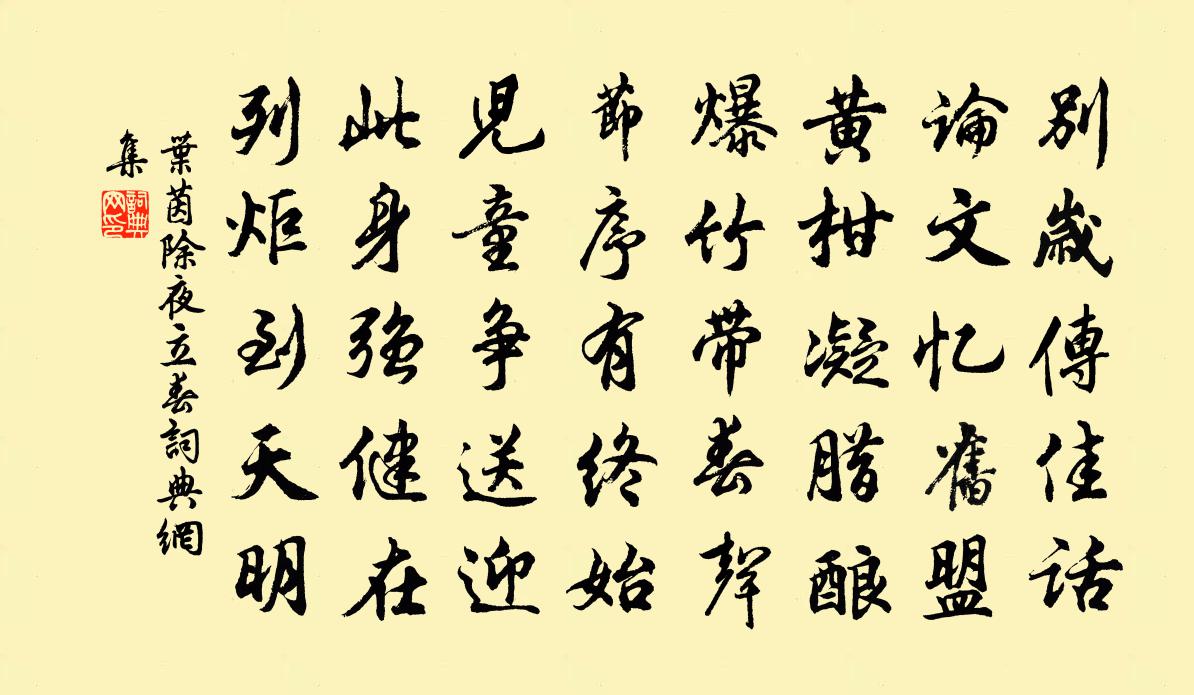 别歲傳佳話
論文忆舊盟
黄柑凝腊酿
爆竹带春聲
節序有终始
児童争送迎
此身强健在
列炬到天明
葉茵除夜立春詞典網
集
詞典
网印